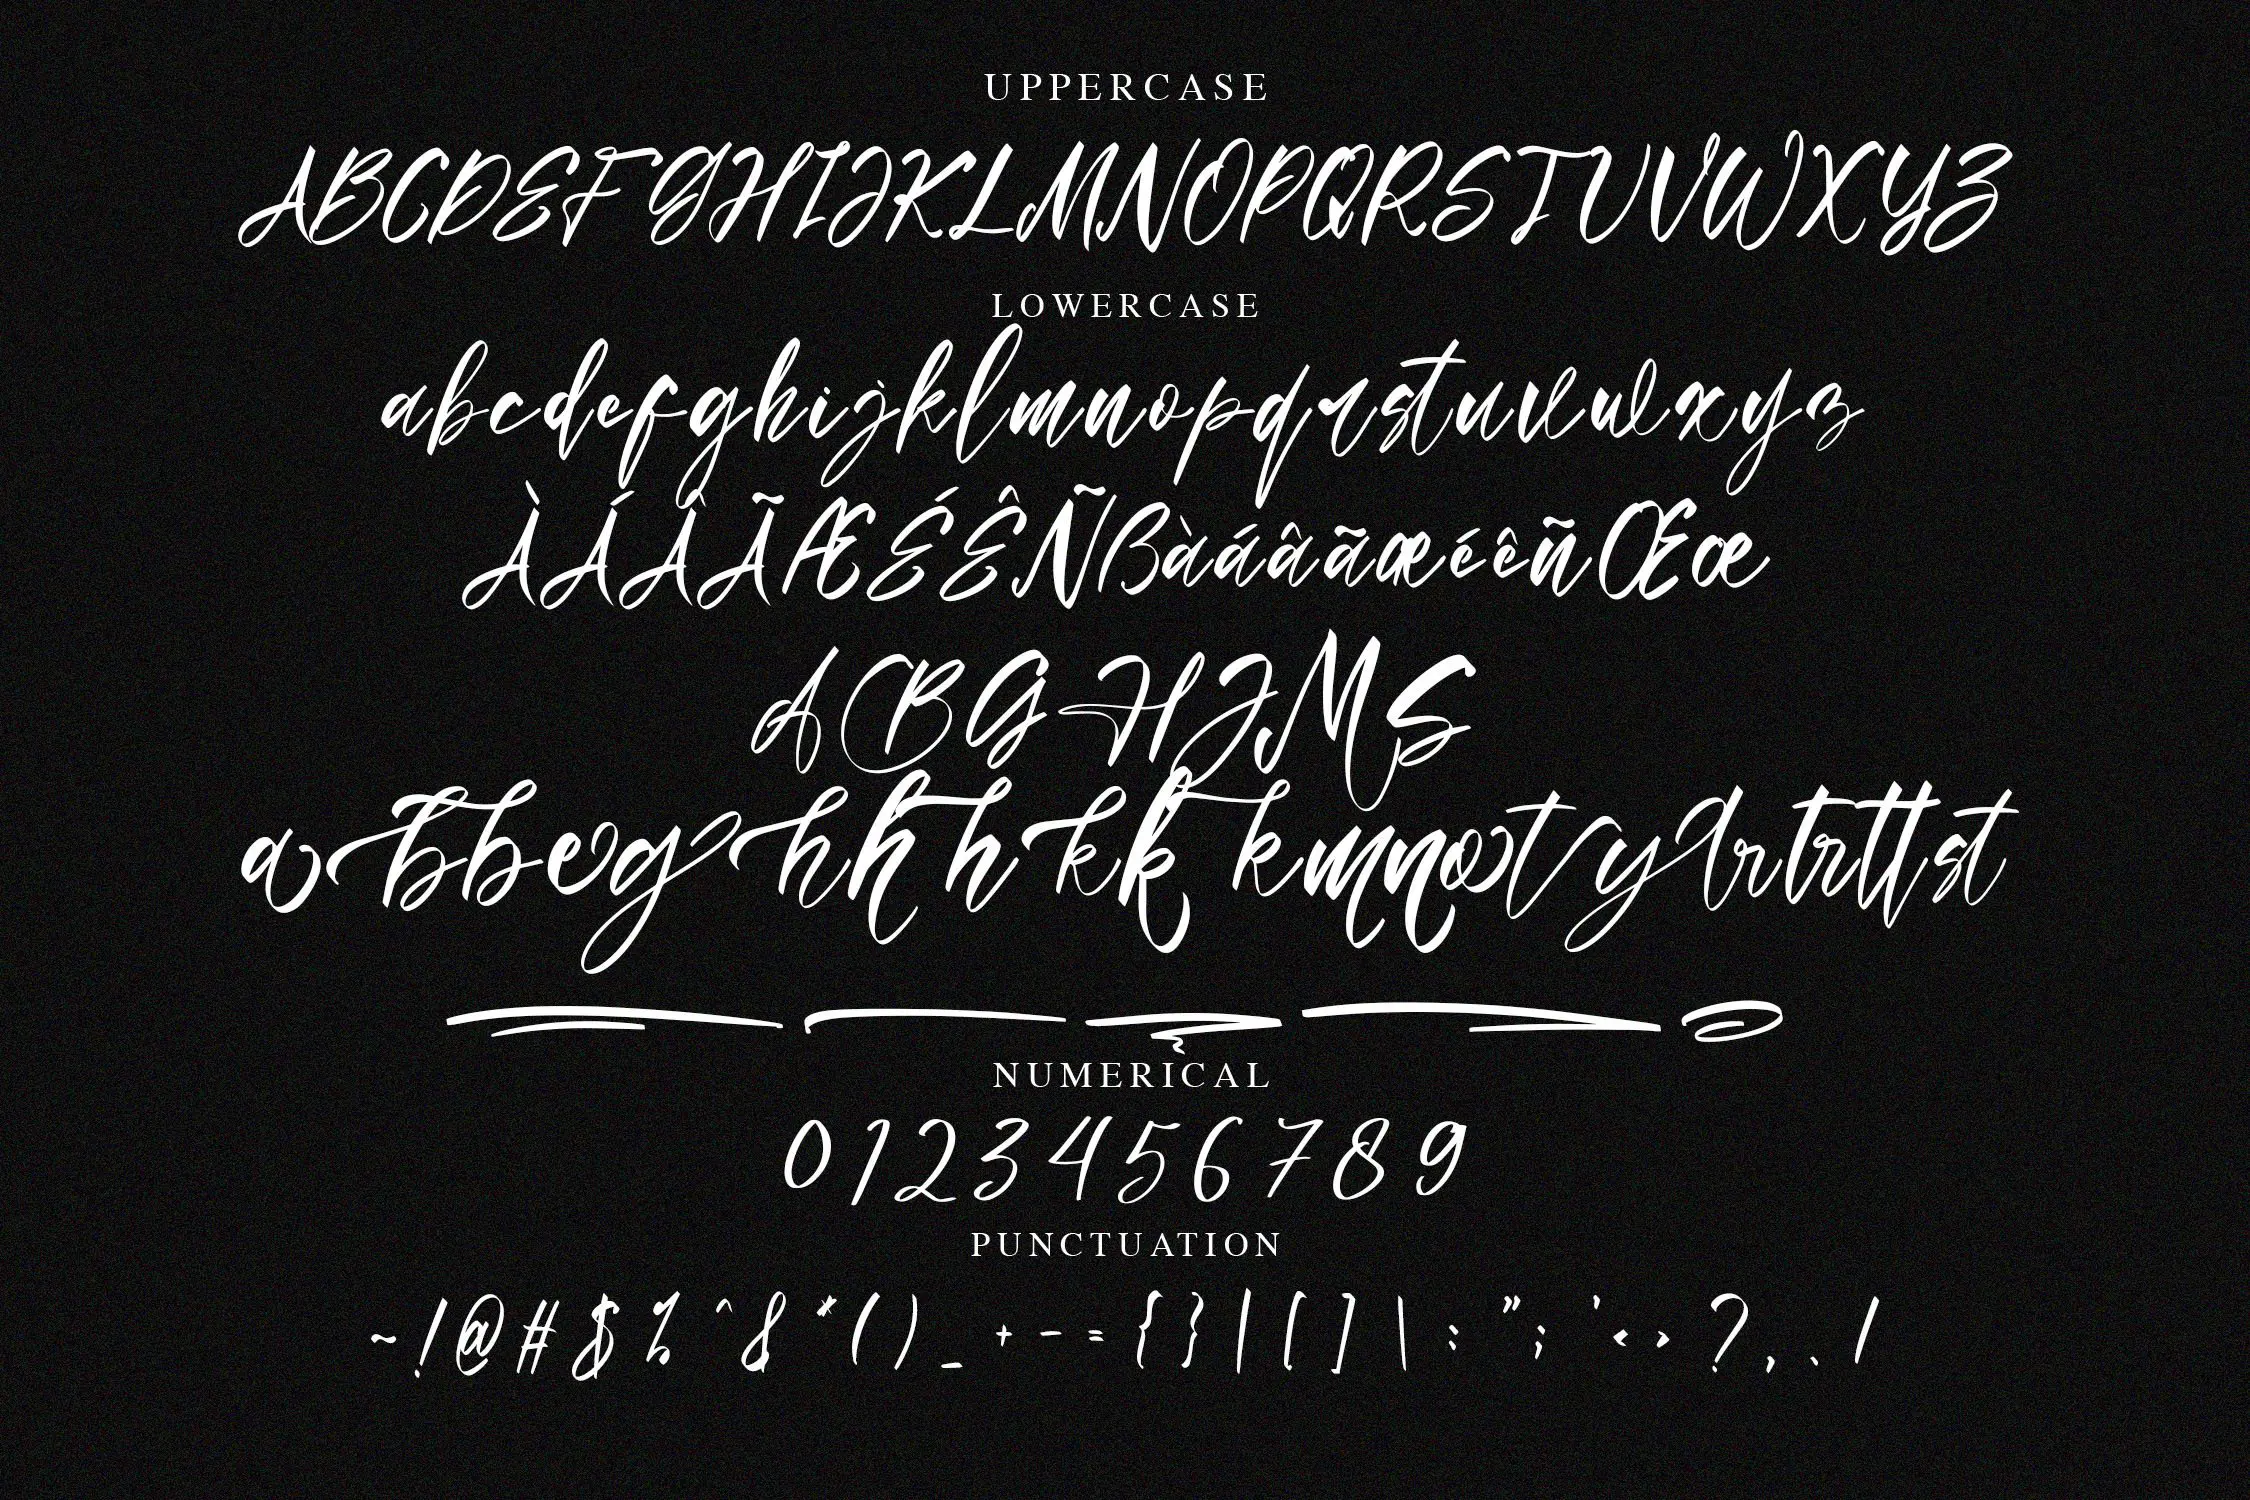 UPPERCASE
ABCDEFGHIJKLMNOPQRSTUVWXYZ
LOWERCASE
abcdefghijklmnopqrstuvwxyz
ÀÁÂÃÆÉÊÑßàáâãæéêñŒœ
ABGHJMS
abbeghhhkkkmnotyrtrttst
NUMERICAL
0123456789
PUNCTUATION
~!@#$%^&*()_+-={}|[]\:";'<>?,./